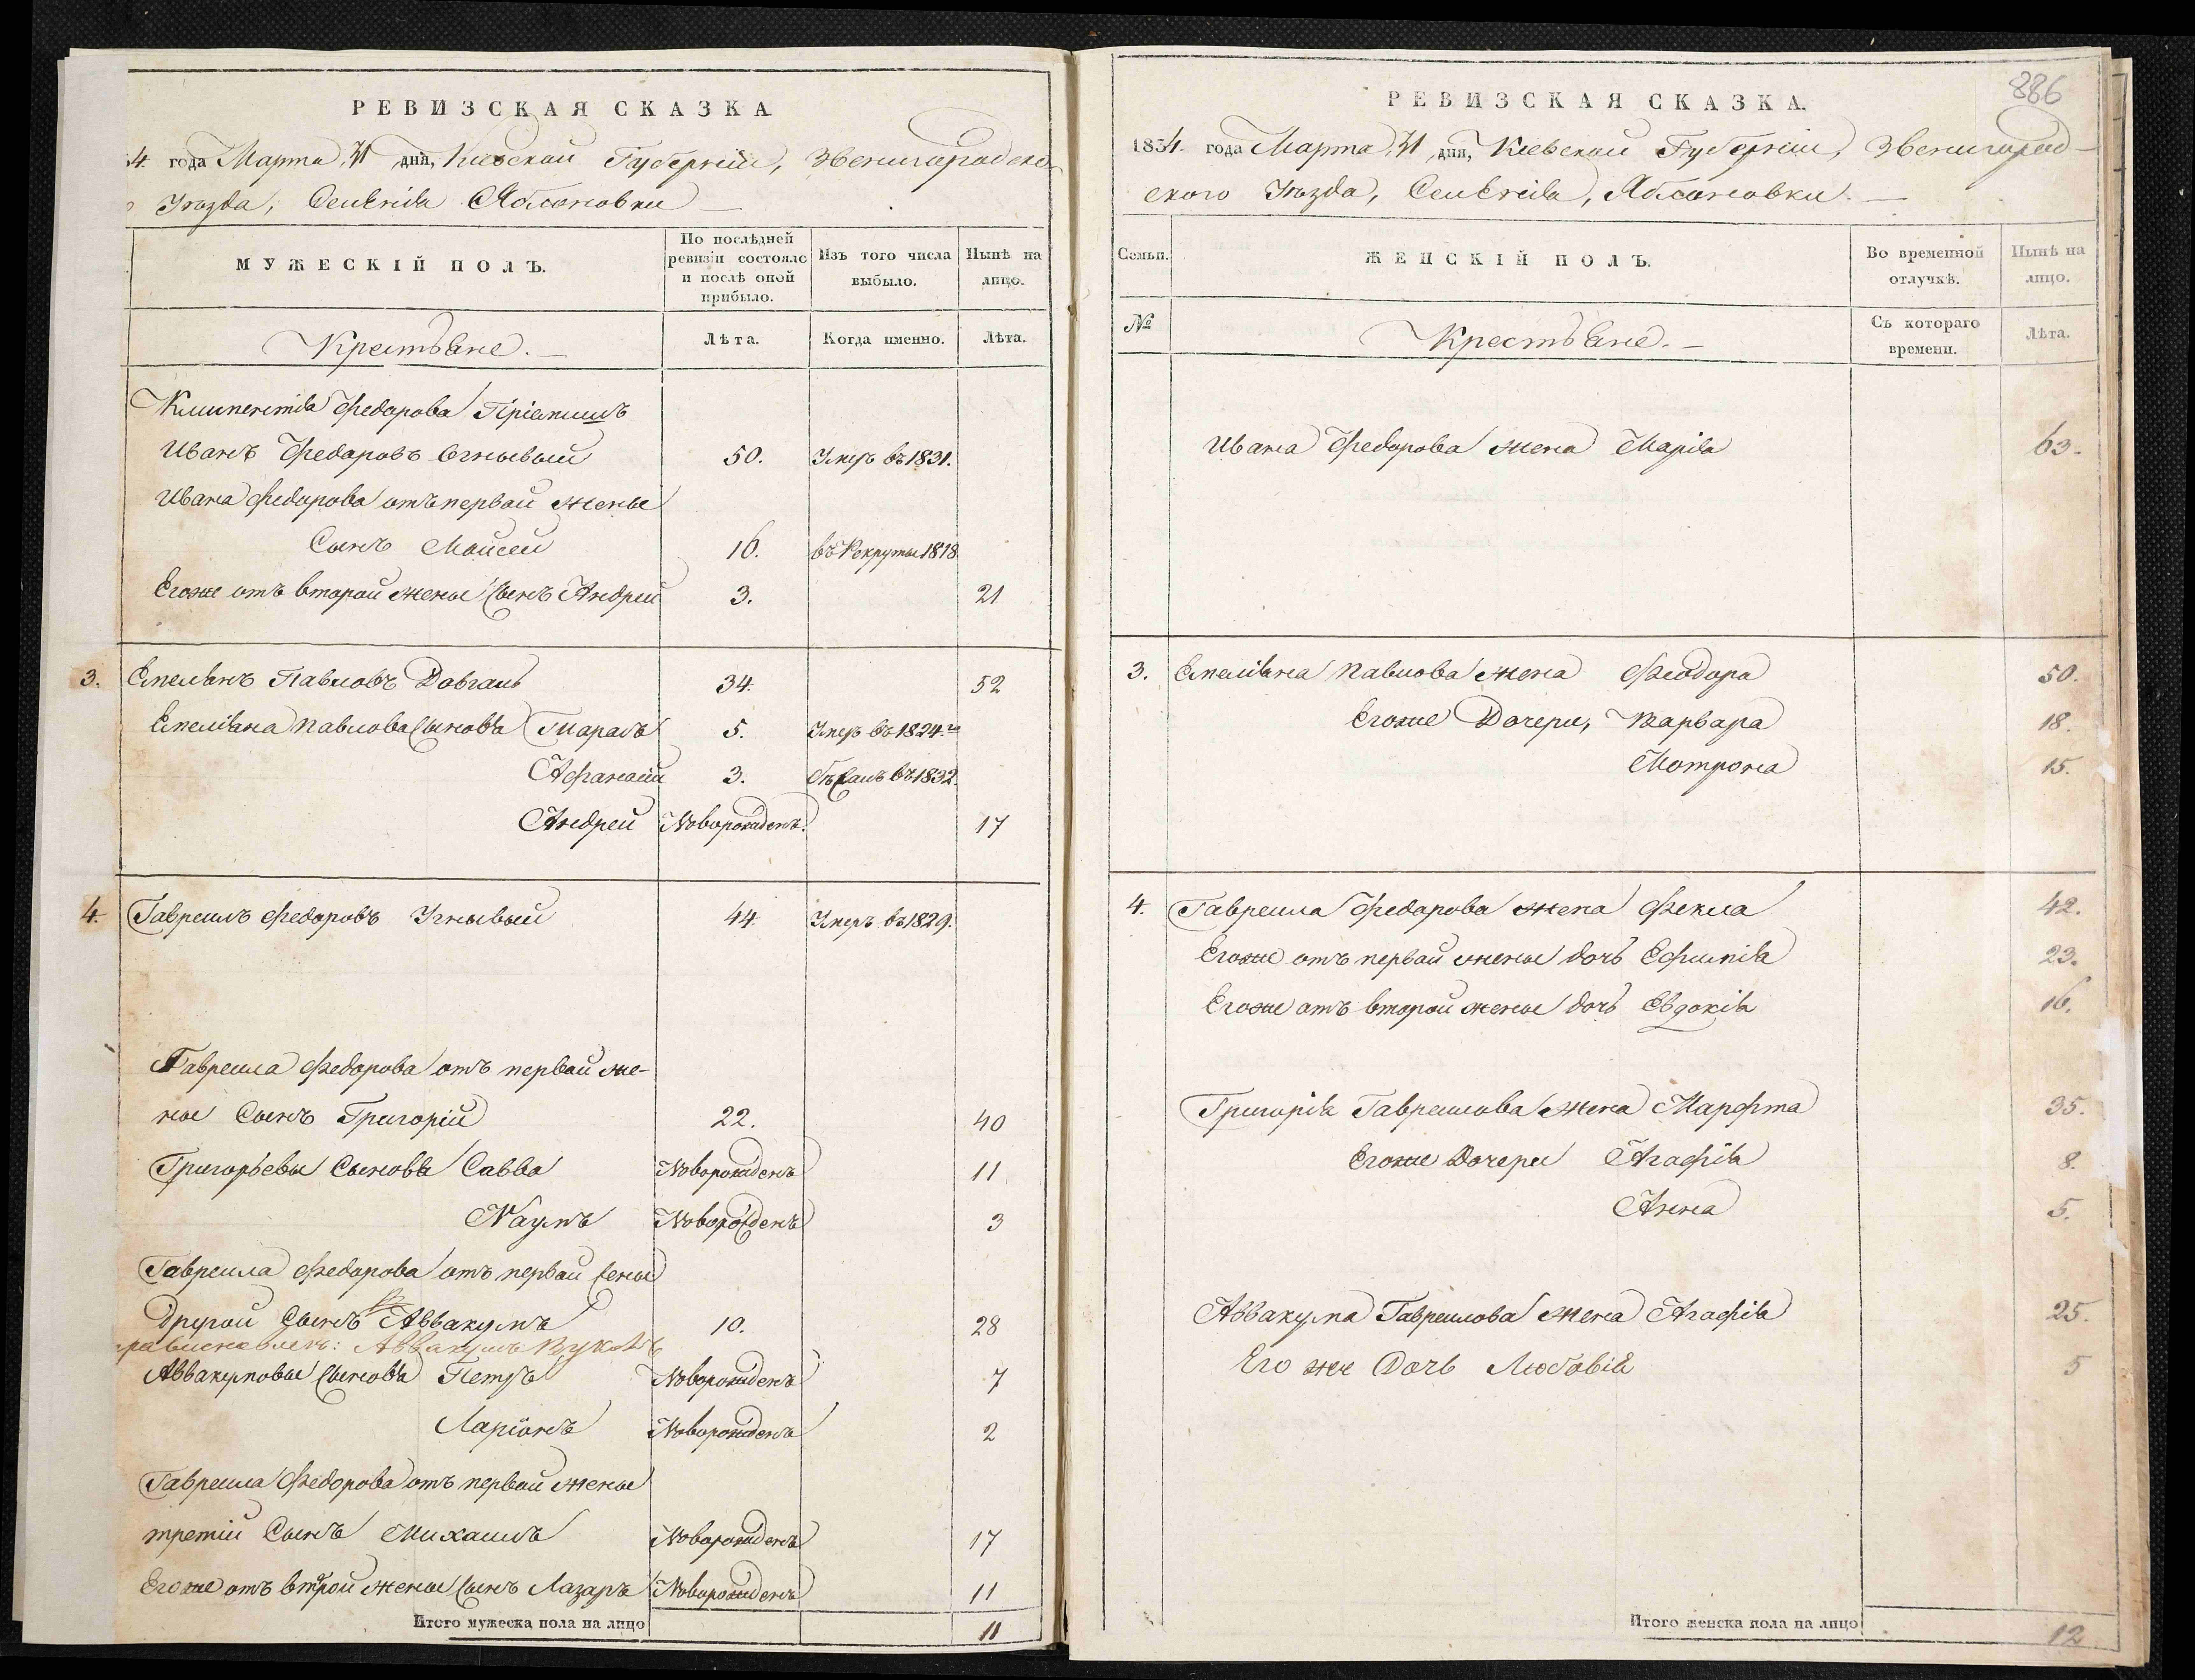 РЕВИЗСКАЯ СКАЗКА
4. года Марта 31 дня, Киевской Губерніи, Звенигородско
Уѣзда, Селенія Яблоновки
МУЖЕСКІЙ ПОЛЪ.
По послѣдней ревизіи состояло и послѣ оной прибыло.
Изъ того числа выбыло.
Нынѣ на лицо.
Крестьяне.
Лѣта.
Когда именно.
Лѣта.
Климентія Федорова
Иванъ Федоровъ Огнывый 50. Умеръ въ 1831.
Ивана Федорова отъ первой жены
Сынъ Мойсей 16. въ Рекруты 1818.
Егоже отъ второй жены Сынъ Андрей 3. 21
3. Емельянъ Павловъ Довгань 34. 52
Емеліяна Павлова Сыновья Тарасъ 5. Умеръ въ 1824.го
Афанасій 3. въ 1832.
Андрей Новорожденъ. 17
4. Гавреилъ Федоровъ Угнывый 44. Умеръ въ 1829.
Гавреила Федорова отъ первой же-
ны Сынъ Григорій 22. 40
Григорьевы Сыновья Савва Новорожденъ 11
Наумъ Новорожденъ 3
Гавреила Федорова отъ первой жены
Другой Сынъ Аввакумъ 10. 28
Аввакумъ
Аввакумовы Сыновья Петръ Новорожденъ 7
Ларіонъ Новорожденъ 2
Гавреила Федорова отъ первой жены
третій Сынъ Михаилъ Новорожденъ 17
Егоже отъ второй жены Сынъ Лазарь Новорожденъ 11
Итого мужеска пола на лицо 11
886
РЕВИЗСКАЯ СКАЗКА.
1834. года Марта 31 дня, Киевской Губерніи, Звенигород-
ского Уѣзда, Селенія, Яблоновки.
Семьи.
ЖЕНСКІЙ ПОЛЪ.
Во временной отлучкѣ.
Нынѣ на лицо.
№
Крестьяне.
Съ котораго времени.
Лѣта.
Ивана Федорова жена Марія 63.
3. Емеліяна Павлова жена Феодора 50.
Егоже Дочери, Варвара 18.
Мотрона 15.
4. Гавреила Федорова жена Фекла 42.
Егоже отъ первой жены дочь Ефимія 23.
Егоже отъ второй жены дочь Евдокія 16.
Григорія Гавреилова жена Марфта 35.
Егоже Дочери Агафія 8.
Анна 5.
Аввакума Гавреилова жена Агафія 25.
Его же Дочь Любовія 5
Итого женска пола на лицо 12